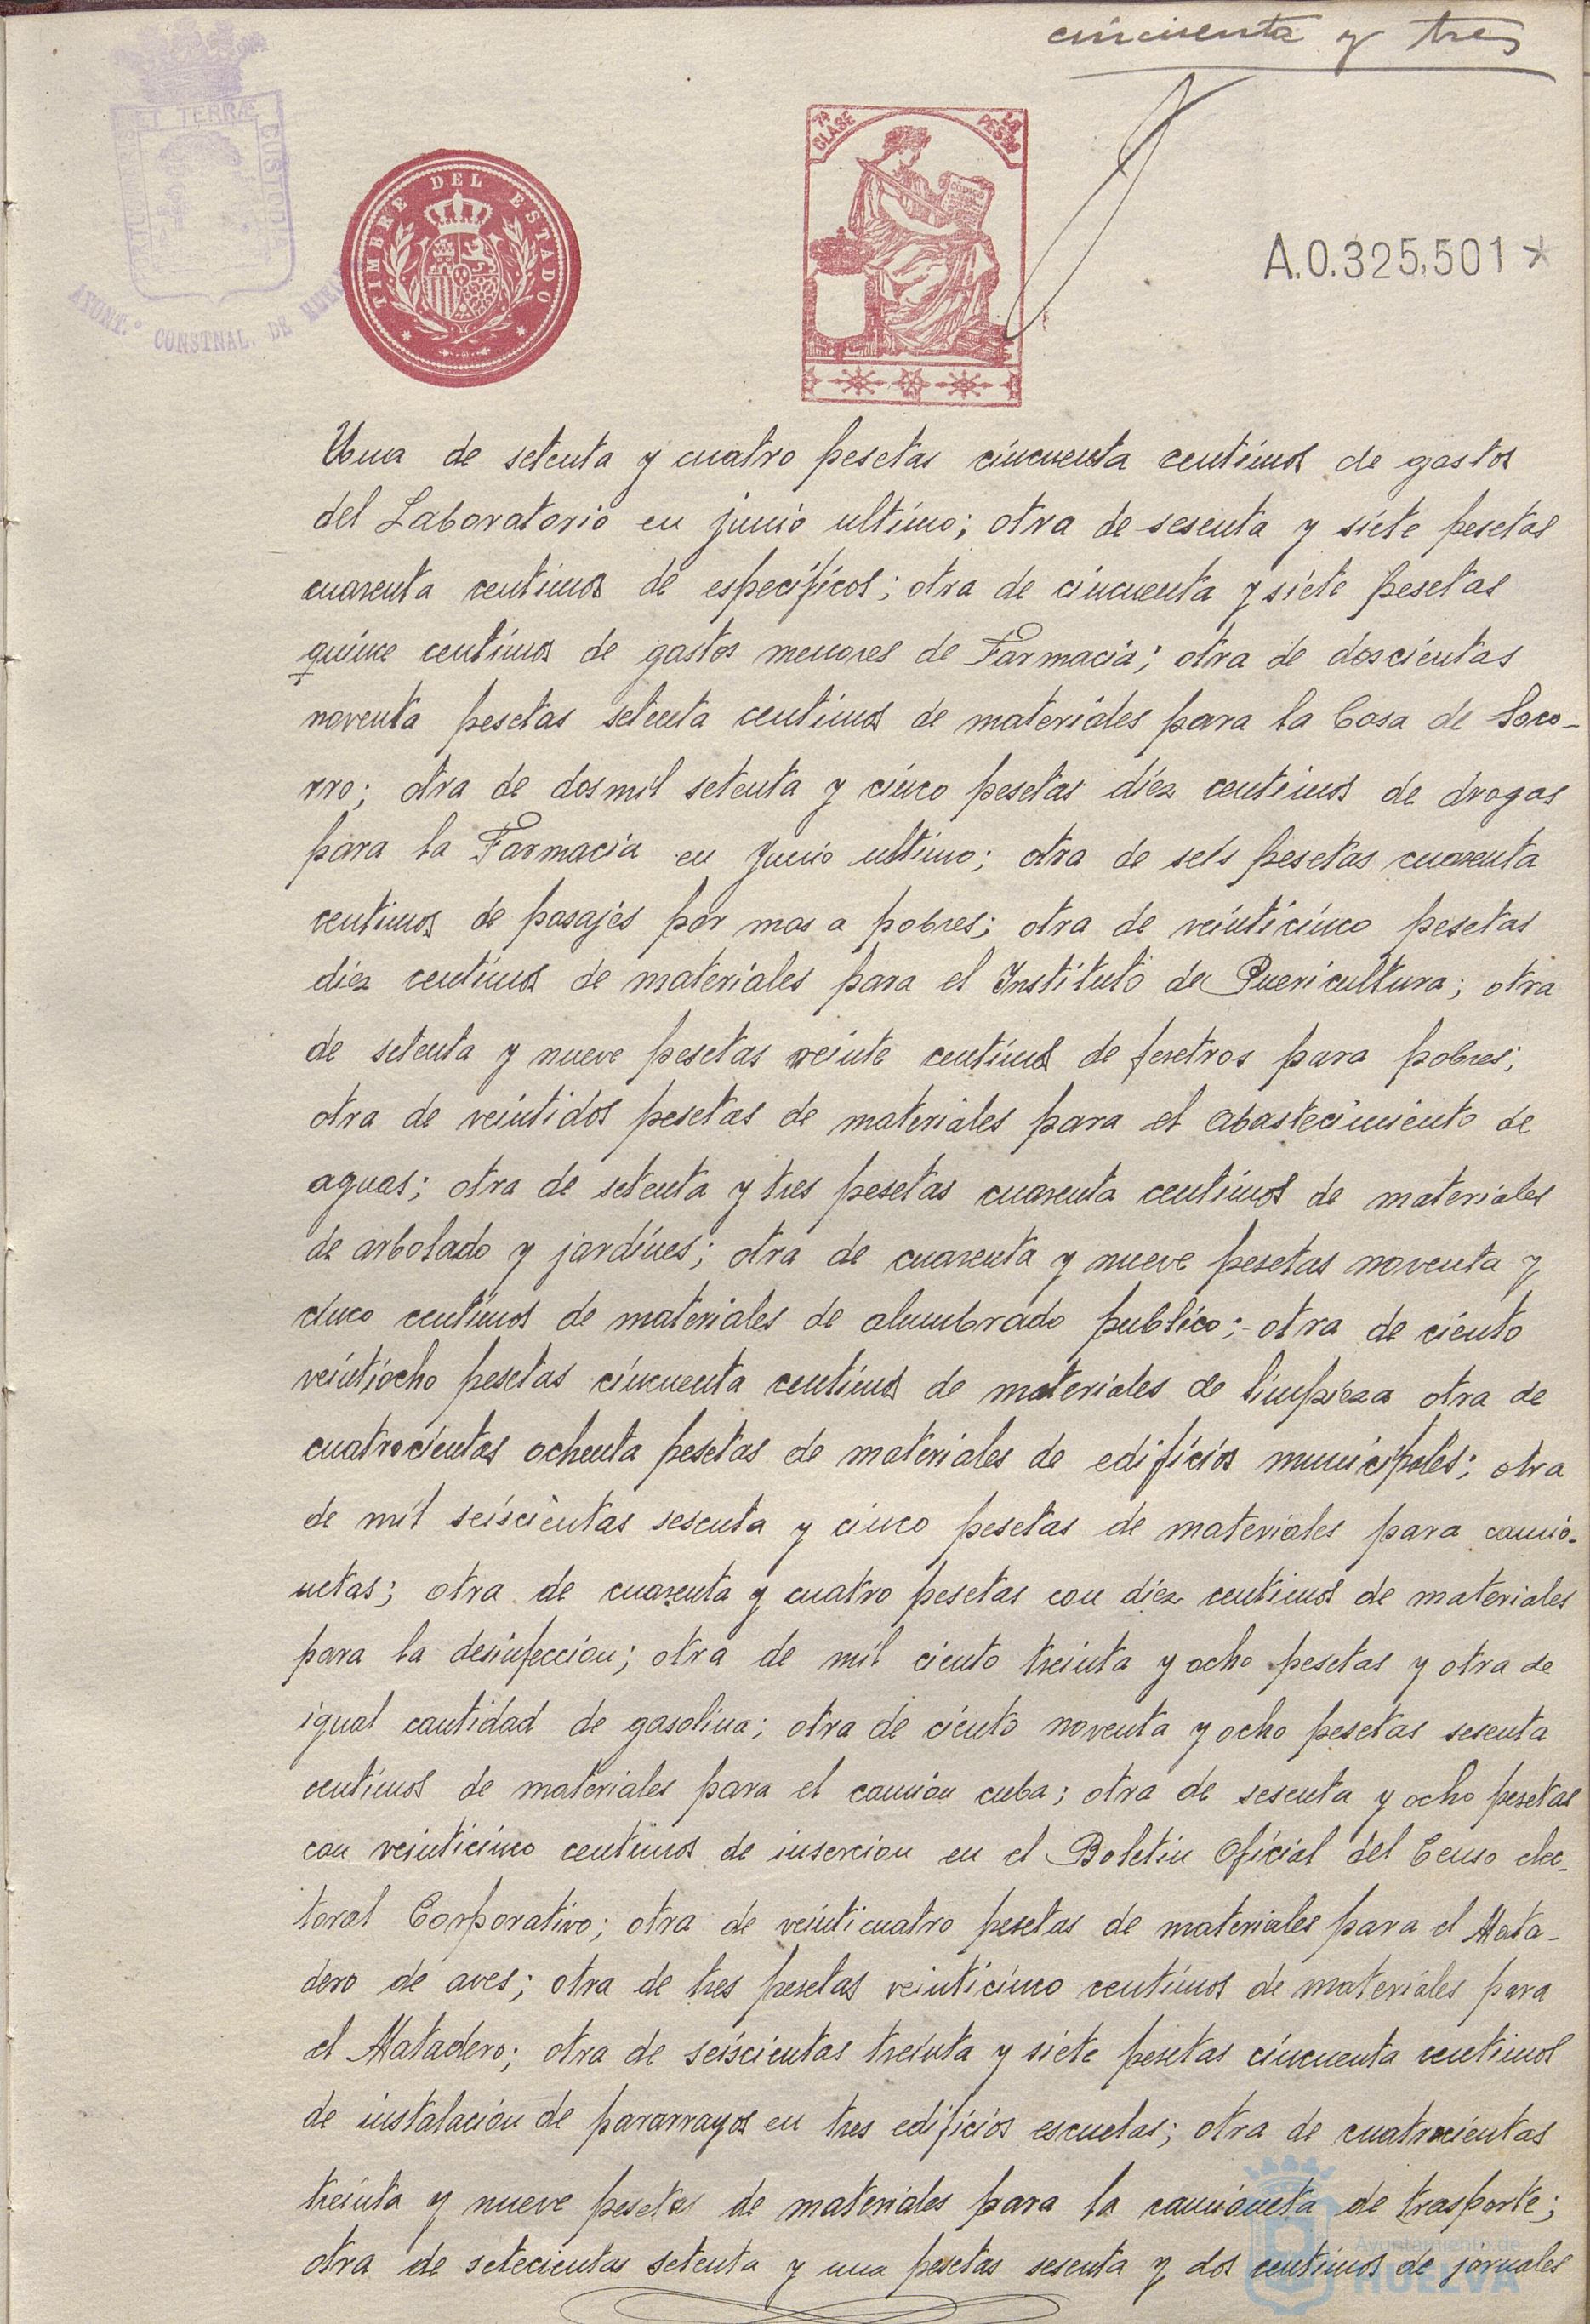 cincuenta y tres
T TERRÆ CUSTODIA
AYUNT.º CONSTNAL. DE
TIMBRE DEL ESTADO
7ª CLASE
PESETA
CODIGO
A.0.325,501*
Una de setenta y cuatro pesetas cincuenta centimos de gastos
del Laboratorio en junio ultimo; otra de sesenta y siete pesetas
cuarenta centimos de especificos; otra de cincuenta y siete pesetas
quince centimos de gastos menores de Farmacia; otra de doscientas
noventa pesetas setenta centimos de materiales para la Casa de Soco-
rro; otra de dosmil setenta y cinco pesetas diez centimos de drogas
para la Farmacia en Junio ultimo; otra de seis pesetas cuarenta
centimos de pasajes por mas a pobres; otra de veinticinco pesetas
diez centimos de materiales para el Instituto de Puericultura; otra
de setenta y nueve pesetas veinte centimos de feretros para pobres;
otra de veintidos pesetas de materiales para el abastecimiento de
aguas; otra de setenta y tres pesetas cuarenta centimos de materiales
de arbolado y jardines; otra de cuarenta y nueve pesetas noventa y
cinco centimos de materiales de alumbrado publico; otra de ciento
veintiocho pesetas cincuenta centimos de materiales de limpieza otra de
cuatrocientas ochenta pesetas de materiales de edificios municipales; otra
de mil seiscientas sesenta y cinco pesetas de materiales para camio-
netas; otra de cuarenta y cuatro pesetas con diez centimos de materiales
para la desinfeccion; otra de mil ciento treinta y ocho pesetas y otra de
igual cantidad de gasolina; otra de ciento noventa y ocho pesetas sesenta
centimos de materiales para el camion cuba; otra de sesenta y ocho pesetas
con veinticinco centimos de insercion en el Boletin Oficial del Censo elec-
toral Corporativo; otra de veinticuatro pesetas de materiales para el Mata-
dero de aves; otra de tres pesetas veinticinco centimos de materiales para
el Matadero; otra de seiscientas treinta y siete pesetas cincuenta centimos
de instalacion de pararrayos en tres edificios escuelas; otra de cuatrocientas
treinta y nueve pesetas de materiales para la camioneta de trasporte;
otra de setecientas setenta y una pesetas sesenta y dos centimos de jornales
Ayuntamiento de
HUELVA